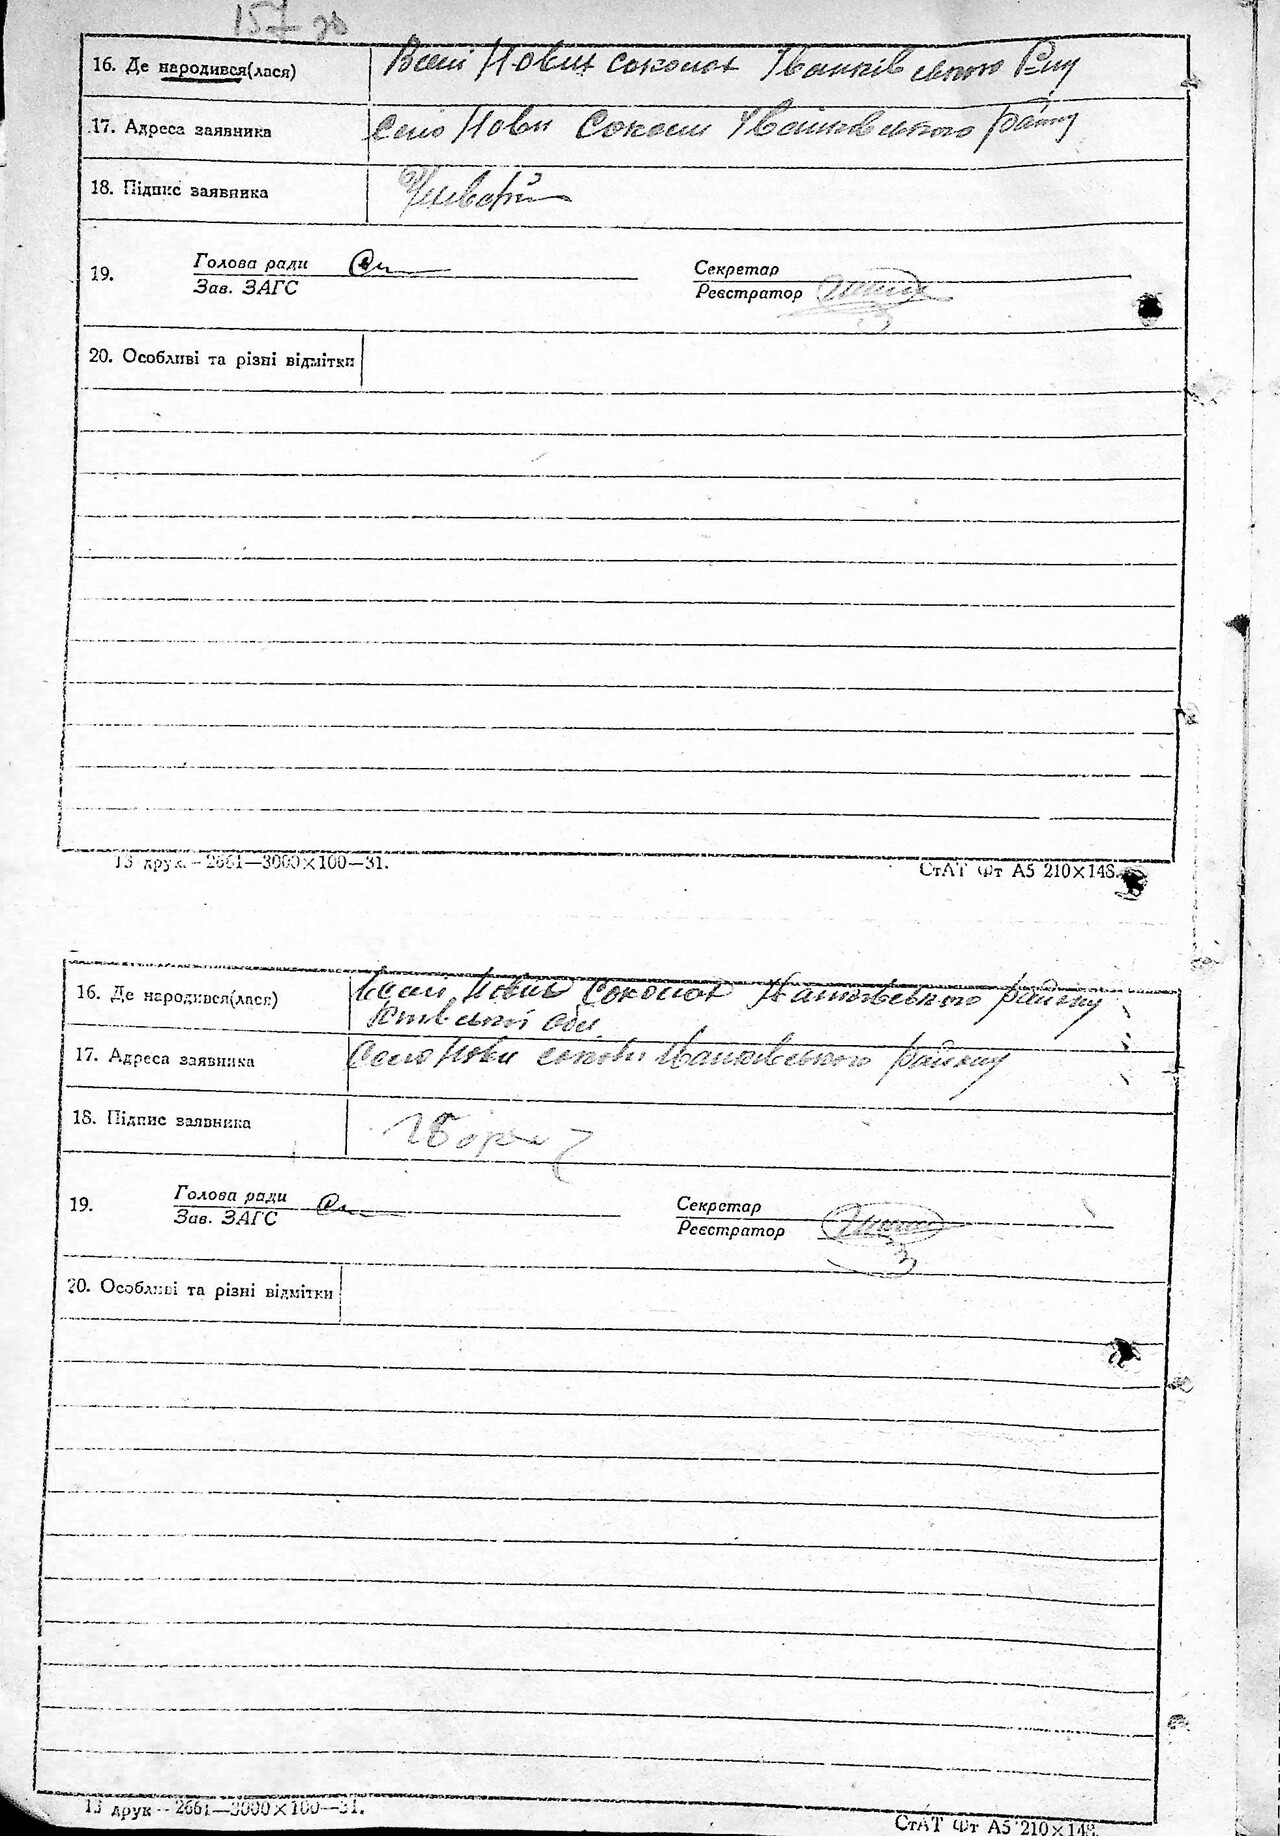 157 зв
16. Де народився(лася) Вселі Нових соколах Іванківського Р-ну
17. Адреса заявника Село Нови Соколи Іванковського району
18. Підпис заявника
19. Голова ради Секретар
Зав. ЗАГС Реєстратор
20. Особливі та різні відмітки
13 друк. – 2661—3000×100—31. СтАТ Фт А5 210×148.
16. Де народився(лася) Вселі Нових Соколах Іванківського району
Київської обл
17. Адреса заявника Село Нови соколи Іванківського району
18. Підпис заявника
19. Голова ради Секретар
Зав. ЗАГС Реєстратор
20. Особливі та різні відмітки
13 друк – 2661—3000×100—31.
СтАТ Фт А5 210×148.